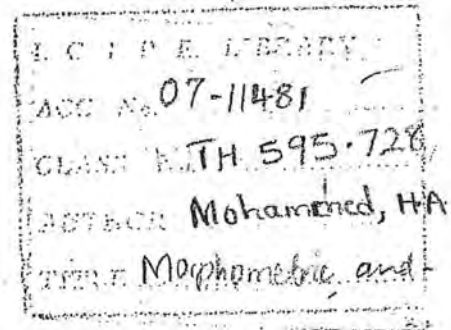 I. C. I. P. E. LIBRARY
ACC. No. 07-11481
CLASS No. TH 595.728
AUTHOR Mohammed, HA
TITLE Morphometric and-